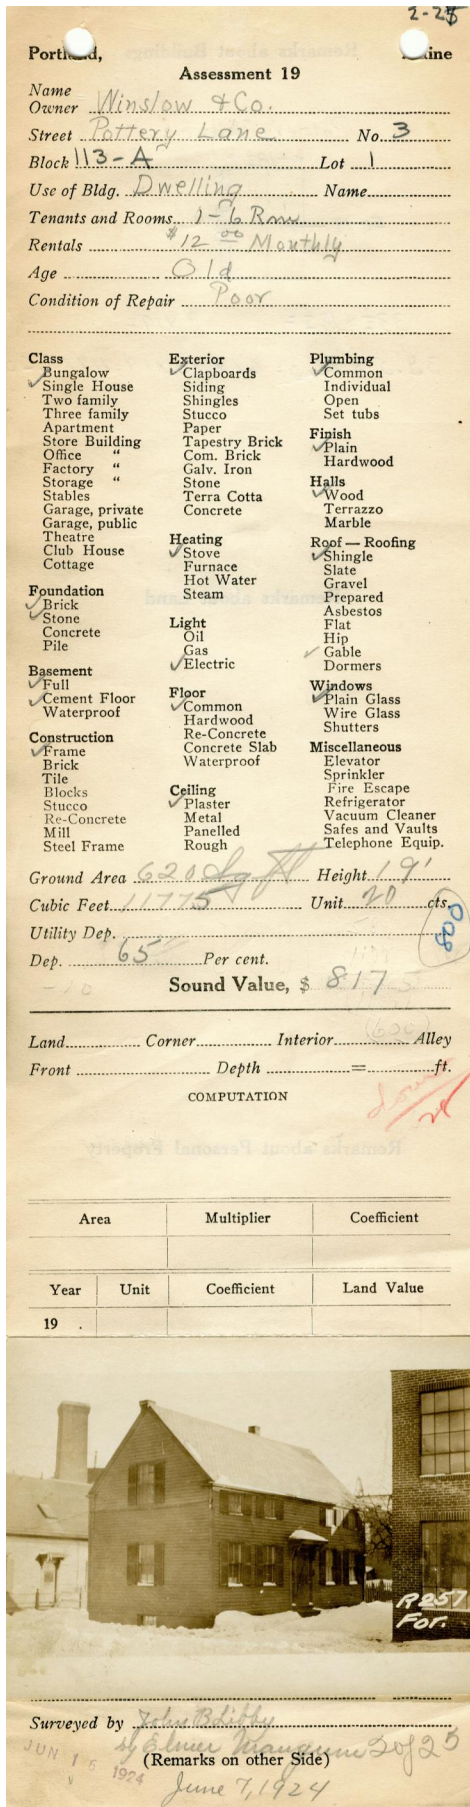 2-25
Portland, Maine
Assessment 19
Name
Owner Winslow & Co.
Street Pottery Lane No. 3
Block 113-A Lot 1
Use of Bldg. Dwelling Name
Tenants and Rooms 1-6 Rms
Rentals $12 00 Monthly
Age Old
Condition of Repair Poor
Class
Bungalow
Single House
Two family
Three family
Apartment
Store Building
Office "
Factory "
Storage "
Stables
Garage, private
Garage, public
Theatre
Club House
Cottage
Foundation
Brick
Stone
Concrete
Pile
Basement
Full
Cement Floor
Waterproof
Construction
Frame
Brick
Tile
Blocks
Stucco
Re-Concrete
Mill
Steel Frame
Exterior
Clapboards
Siding
Shingles
Stucco
Paper
Tapestry Brick
Com. Brick
Galv. Iron
Stone
Terra Cotta
Concrete
Heating
Stove
Furnace
Hot Water
Steam
Light
Oil
Gas
Electric
Floor
Common
Hardwood
Re-Concrete
Concrete Slab
Waterproof
Ceiling
Plaster
Metal
Panelled
Rough
Plumbing
Common
Individual
Open
Set tubs
Finish
Plain
Hardwood
Halls
Wood
Terrazzo
Marble
Roof — Roofing
Shingle
Slate
Gravel
Prepared
Asbestos
Flat
Hip
Gable
Dormers
Windows
Plain Glass
Wire Glass
Shutters
Miscellaneous
Elevator
Sprinkler
Fire Escape
Refrigerator
Vacuum Cleaner
Safes and Vaults
Telephone Equip.
Ground Area 620 Sq ft Height 19'
Cubic Feet 11775 Unit 20 cts.
Utility Dep. 800
Dep. 65 Per cent.
Sound Value, $ 817
Land Corner Interior Alley
Front Depth = ft.
COMPUTATION
Area Multiplier Coefficient
Year Unit Coefficient Land Value
19 .
R257
For.
Surveyed by John B Libby
by Elmer Mangum 2 of 25
(Remarks on other Side)
JUN 15 1924
June 7, 1924